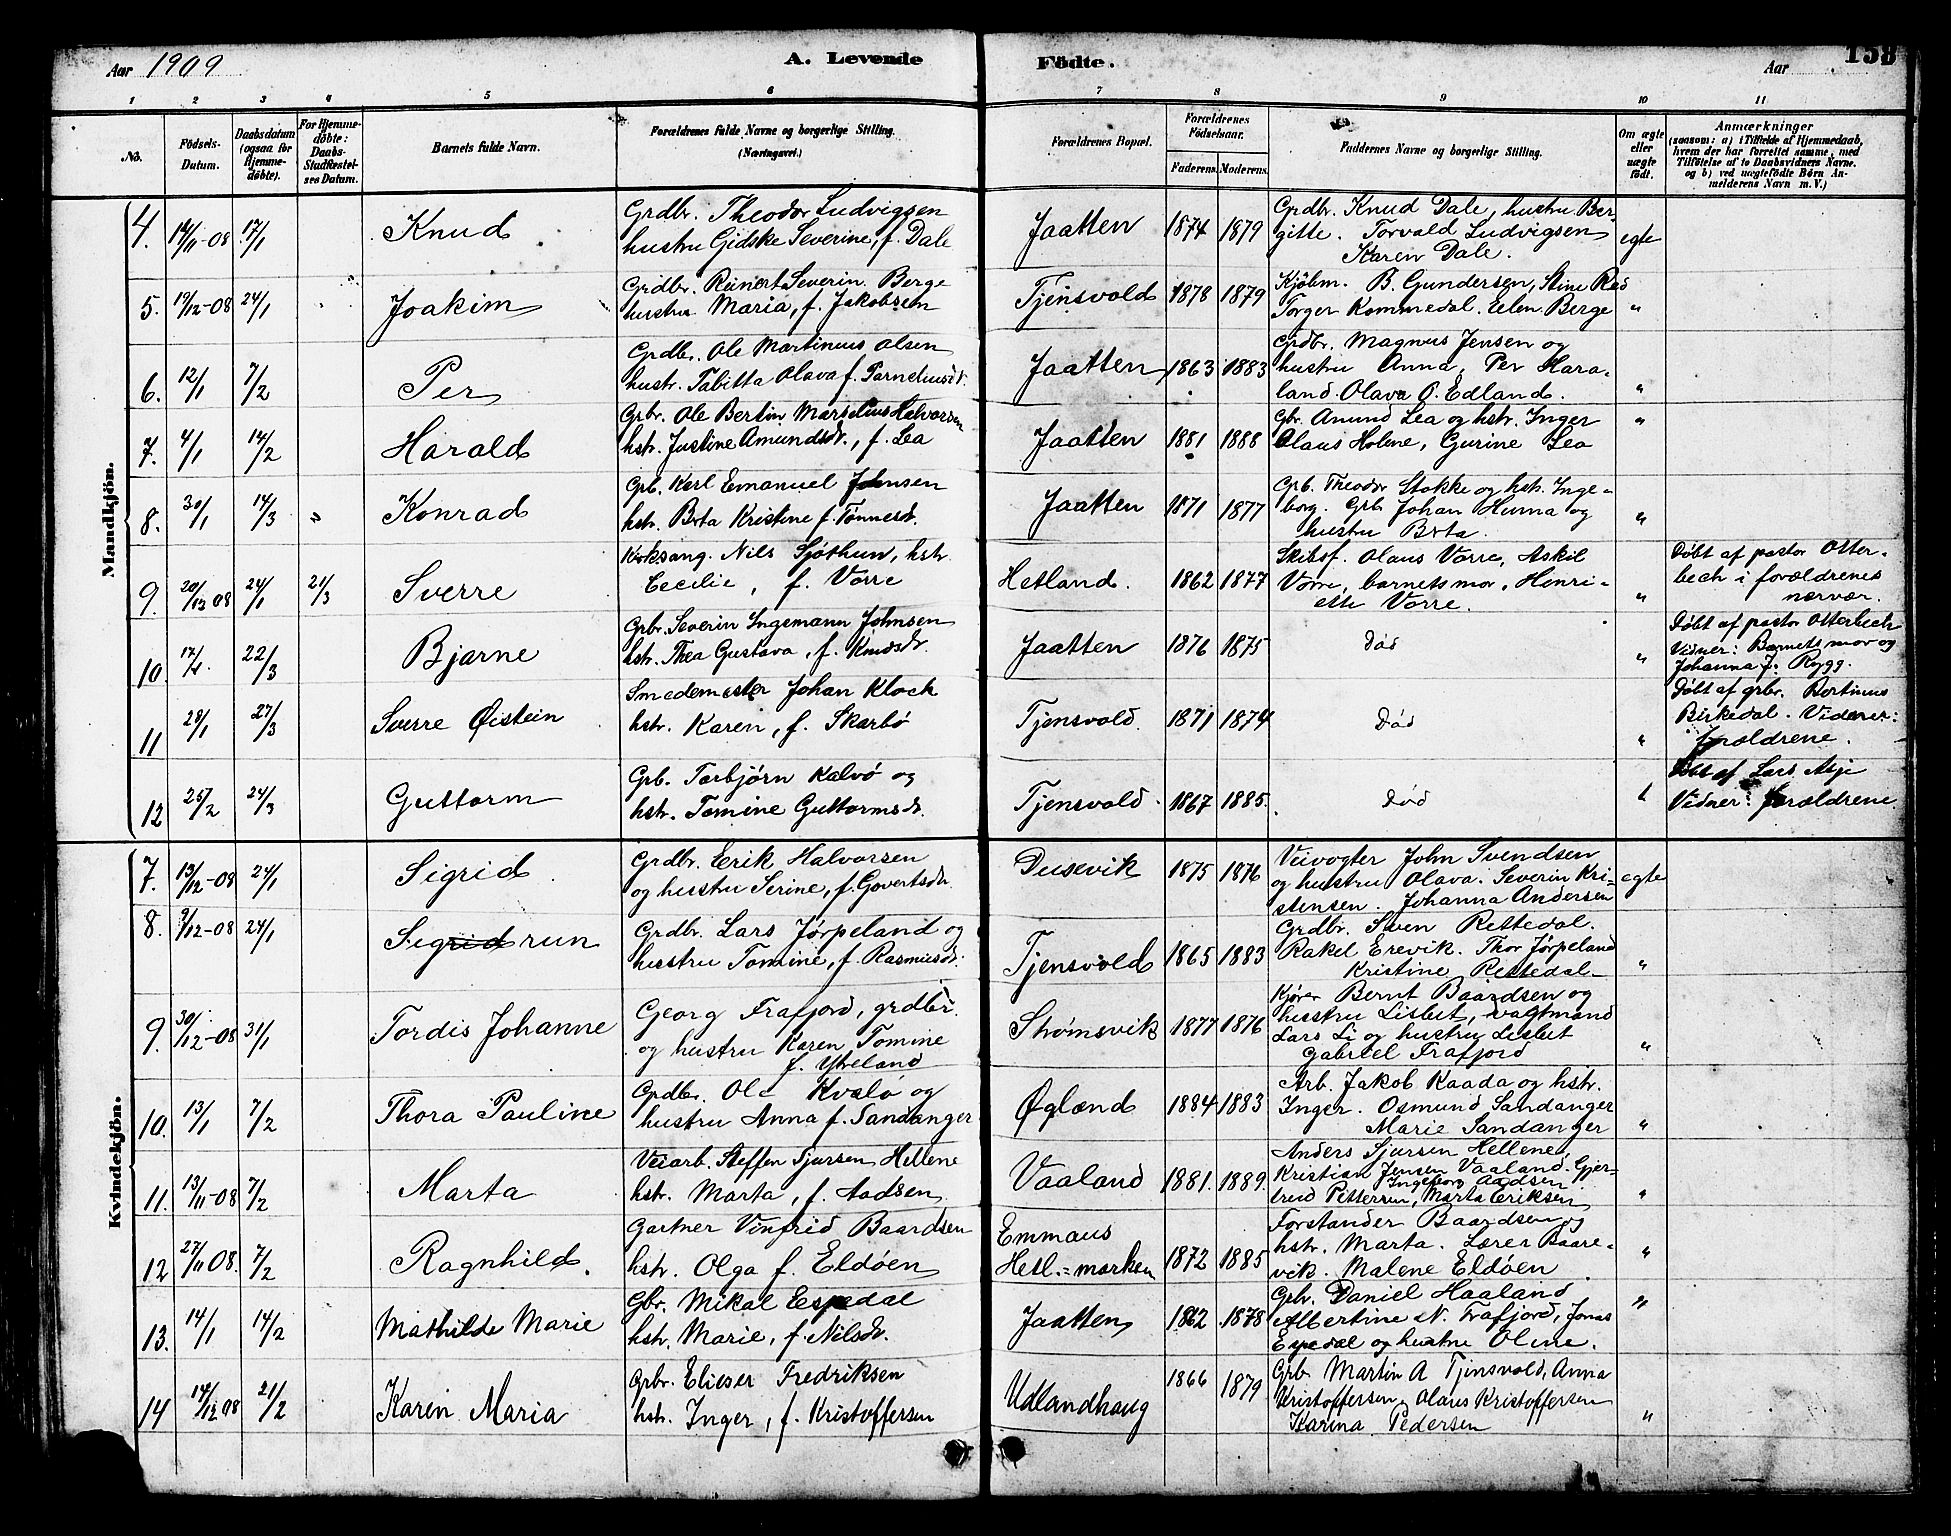 Aar 1909 A. Levende
1 2 3 4 5 6
No. Födsels-Datum. Daabsdatum (ogsaa for Hjemme-döbte). For Hjemme-döbte: Daabs-Stadfæstel-ses Datum. Barnets fulde Navn. Forældrenes fulde Navne og borgerlige Stilling. (Næringsvei.)
Födte. Aar 153
7 8 9 10 11
Forældrenes Bopæl. Forældrenes Födselsaar. Faderens. Moderens. Faddernes Navne og borgerlige Stilling. Om ægte eller uægte födt. Anmærkninger
(saasom: a) i Tilfælde af Hjemmedaab,
hvem der har forrettet samme, med
Tilföielse af to Daabsvidners Navne.
og b) ved uægtefödte Börn An-
melderens Navn m.V.)
Mandkjön.
4. 14/11-08 17/1 Knud Grdbr. Theodor Ludvigsen
hustru Gidske Severine, f. Dale
Jaatten 1874 1879 Grdbr. Knud Dale, hustru Ber-
gitte. Torvald Ludvigsen
Karen Dale. egte
5. 19/12-08 24/1 Joakim Grdbr. Reinert Severin Berge
hustru Maria, f. Jakobsen
Tjensvold 1878 1879 Kjöbm. B. Gundersen, Stine
Torger Kommedal. Elen Berge "
6. 12/1 7/2 Per Grdbr. Ole Martinius Olsen
hustr. Tabitta Olava f.
Jaatten 1863 1883 Grdbr. Magnus Jensen og
hustru Anna, Per Hara-
land. Olava O. Edland. "
7. 4/1 14/2 Harald Grbr. Ole Bertin Marselius Halvorsen
hstr. Justine Amundsdr., f. Lea
Jaatten 1881 1888 Gbr. Anund Lea og hstr. Inger
Olaus Holene, Gurine Lea "
8. 30/1 14/3 " Konrad Grb. Karl Emanuel Johnsen
hstr. Brta Kristine f. Tönnesdr.
Jaatten 1871 1877 Grb. Theodor Stokke og hstr. Inge-
borg. Grb Johan Huma og
hustru Brta. "
9. 20/12 08 24/1 21/3 Sverre Nils Sjöthun, hstr.
Cecilie, f. Vorre
Hetland. 1862 1877 Skibsf. Olaus Vorre, Askil
Vorre, barnets mor, Henri-
ette Vorre. "
Döbt af pastor Otter-
bech i forældrenes
nærvær.
10 17/1 22/3 Bjarne Grbr. Severin Ingemann Johnsen
hstr. Thea Gustava, f. Knudsdr.
Jaatten 1876 1875 Död "
Döbt af pastor Otterbech
Vidner: Barnets mor og
Johanna J. Rygg.
11 28/1 27/3 Sverre Øistein Smedemester Johan Klock
hstr. Karen, f. Skarbö
Tjensvold. 1871 1874 Död "
Döbt af grbr. Bertinus
Birkedal. Vidner:
forældrene.
12 25/2 24/3 Guttorm Grb. Torbjörn Kalvö og
hstr. Tomine Guttormsdr.
Tjensvold. 1867 1885. Död "
Döbt af Lars Asje
Vidner: forældrene
Kvindekjön.
7. 13/12-08 24/1 Sigrid Grdbr. Erik Halvorsen
og hustru Serine, f. Govertsdr.
Dusevik 1875 1876 Veivogter John Svendsen
og hustru Olava. Severin Kri-
stensen. Johanna Andersen egte
8. 9/12-08 24/1 Sigridrun Grdbr. Lars Jörpeland og
hustru Tomine, f. Rasmusdr.
Tjensvold 1865 1883 Grdbr. Sven Rettedal.
Rakel Erevik. Thor Jörpeland
Kristine Rettedal "
9. 30/12-08 31/1 Tordis Johanne Georg Frafjord, grdbr.
og hustru Karen Tomine
f. Ytreland
Strömsvik 1877 1876 Kjörer Bernt Baardsen og
hustru Lisbet, vagtmand
Lars Li og hustru Lisbet
Gabriel Frafjord "
10. 13/1 7/2 Thora Pauline Grdbr. Ole Kvalö og
hustru Anna f. Sandanger
Øglænd 1884 1883 Arb. Jakob Kaada og hstr.
Inger. Osmund Sandanger
Marie Sandanger "
11. 13/11-08 7/2 Marta Veiarb. Steffen Sjursen Hellene
hstr. Marta, f. Aadsen
Vaaland 1881. 1889. Anders Sjursen Hellene,
Kristian Jensen Vaaland. Gjer-
Ingeborg Aadsen
trud Pettersen, Marta Eriksen "
12 27/11 08. 7/2 Ragnhild. Gartner Vinfrid Baardsen
hstr. Olga f. Eldöen
Emmaus
Hetl.-marken 1872 1885 Forstander Baardsen og
hstr. Marta. Lærer Baare-
vik. Malene Eldöen "
13. 14/1 14/2 Mathilde Marie Gbr. Mikal Espedal
hstr. Marie, f. Nilsdr.
Jaatten 1862 1878 Grbr. Daniel Haaland
Albertine N. Frafjord, Jonas
Espedal og hustru Oline. "
14 14/12 08 21/2 Karen Maria Grbr. Elieser Fredriksen
hstr. Inger, f. Kristoffersen
Udlandhaug 1866 1879 Grb. Martin A Tjensvold, Anna
Kristoffersen, Olaus Kristoffersen
Karina Pedersen "